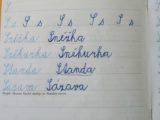 S s S s S s S s
Sněžka Sněžka
Sněhurka Sněhurka
Standa Standa
Sázava Sázava